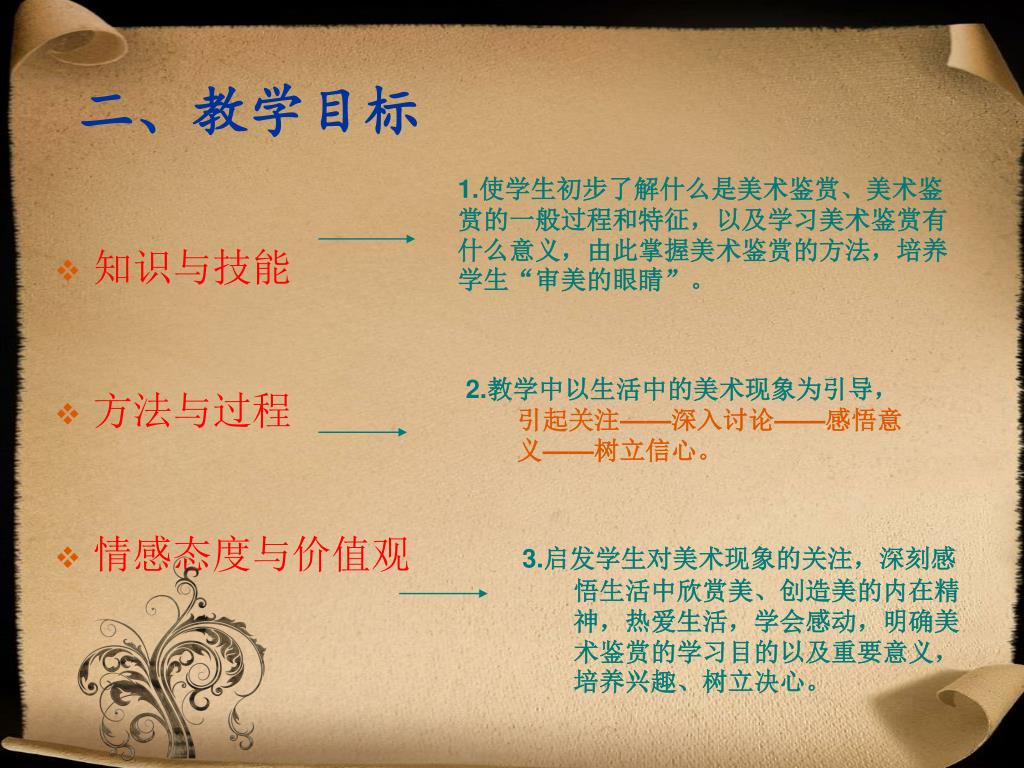 二、教学目标
知识与技能
1.使学生初步了解什么是美术鉴赏、美术鉴
赏的一般过程和特征，以及学习美术鉴赏有
什么意义，由此掌握美术鉴赏的方法，培养
学生“审美的眼睛”。
方法与过程
2.教学中以生活中的美术现象为引导，
引起关注——深入讨论——感悟意
义——树立信心。
情感态度与价值观
3.启发学生对美术现象的关注，深刻感
悟生活中欣赏美、创造美的内在精
神，热爱生活，学会感动，明确美
术鉴赏的学习目的以及重要意义，
培养兴趣、树立决心。